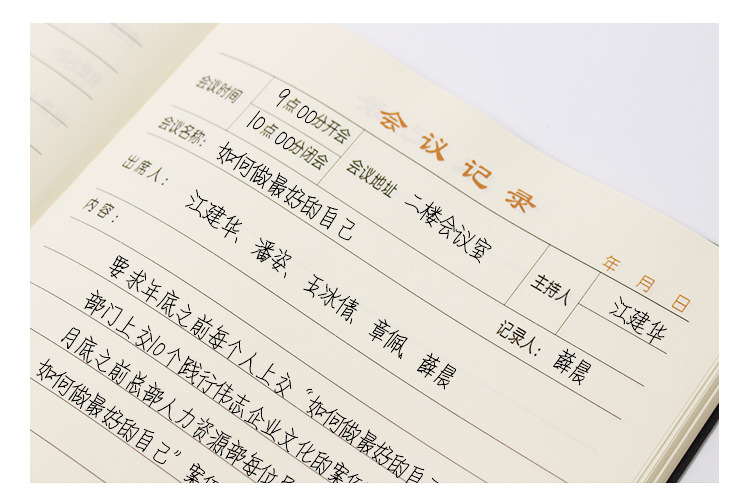 会议记录
年 月 日
会议时间 9点00分开会
10点00分闭会
会议地址 二楼会议室
主持人 江建华
会议名称: 如何做最好的自己
记录人: 薛晨
出席人: 江建华、潘姿、玉冰倩、章佩、薛晨
内容:
要求年底之前每个人上交“如何做最好的自
部门上交10个践行伟志企业文化的案例
月底之前总部人力资源部每位
如何做最好的自己”案例